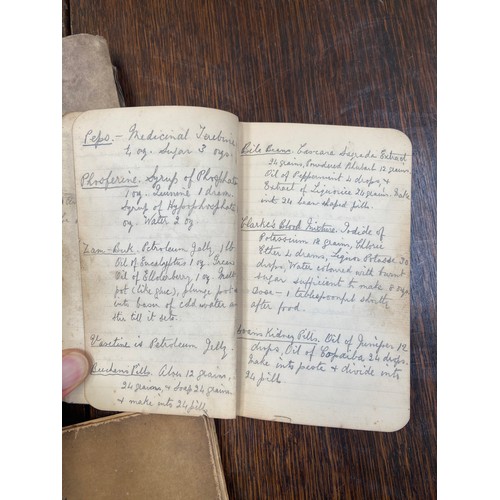 Peps.- Medicinal Terebine
¼ oz. Sugar 3 ozs.
Phosferine. Syrup of Phosphate
1 oz. Quinine 1 dram,
Syrup of Hypophosphate
oz. Water 2 oz.
Zam-Buk. Petroleum Jelly, 1 lb
Oil of Eucalyptus 1 oz. Green
Oil of Elderberry, 1 oz. Melt
pot (like glue), plunge pot
into basin of cold water and
stir till it sets.
Vaseline is Petroleum Jelly.
Beechams Pills. Aloes 12 grains,
24 grains, & Soap 24 grains
& make into 24 pills
Bile Beans. Cascara Sagrada Extract
24 grains, Powdered Rhubarb 12 grains,
Oil of Peppermint 4 drops, &
Extract of Liquorice 24 grains. Make
into 24 bean shaped pills.
Clarke's Blood Mixture. Iodide of
Potassium 12 grains, Chloric
Ether 4 drams, Liquor Potasse 30
drops, Water coloured with burnt
sugar sufficient to make 8 ozs
Dose - 1 tablespoonful shortly
after food.
Evans Kidney Pills. Oil of Juniper 12
drops, Oil of Copaiba 24 drops.
Make into paste & divide into
24 pills.